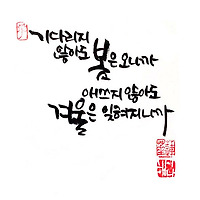 기다리지
않아도 봄은 오니까
애쓰지 않아도
겨울은 잊혀지니까